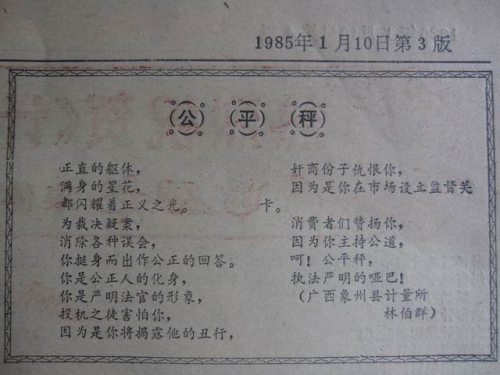 1985年1月10日第3版
公平秤
正直的躯体，
满身的星花，
都闪耀着正义之光。
为裁决疑案，
消除各种误会，
你挺身而出作公正的回答。
你是公正人的化身，
你是严明法官的形象，
投机之徒害怕你，
因为是你将揭露他的丑行，
奸商份子仇恨你，
因为是你在市场设主监督关
卡。
消费者们赞扬你，
因为你主持公道，
呵！公平秤，
执法严明的哑巴！
（广西象州县计量所
林伯群）